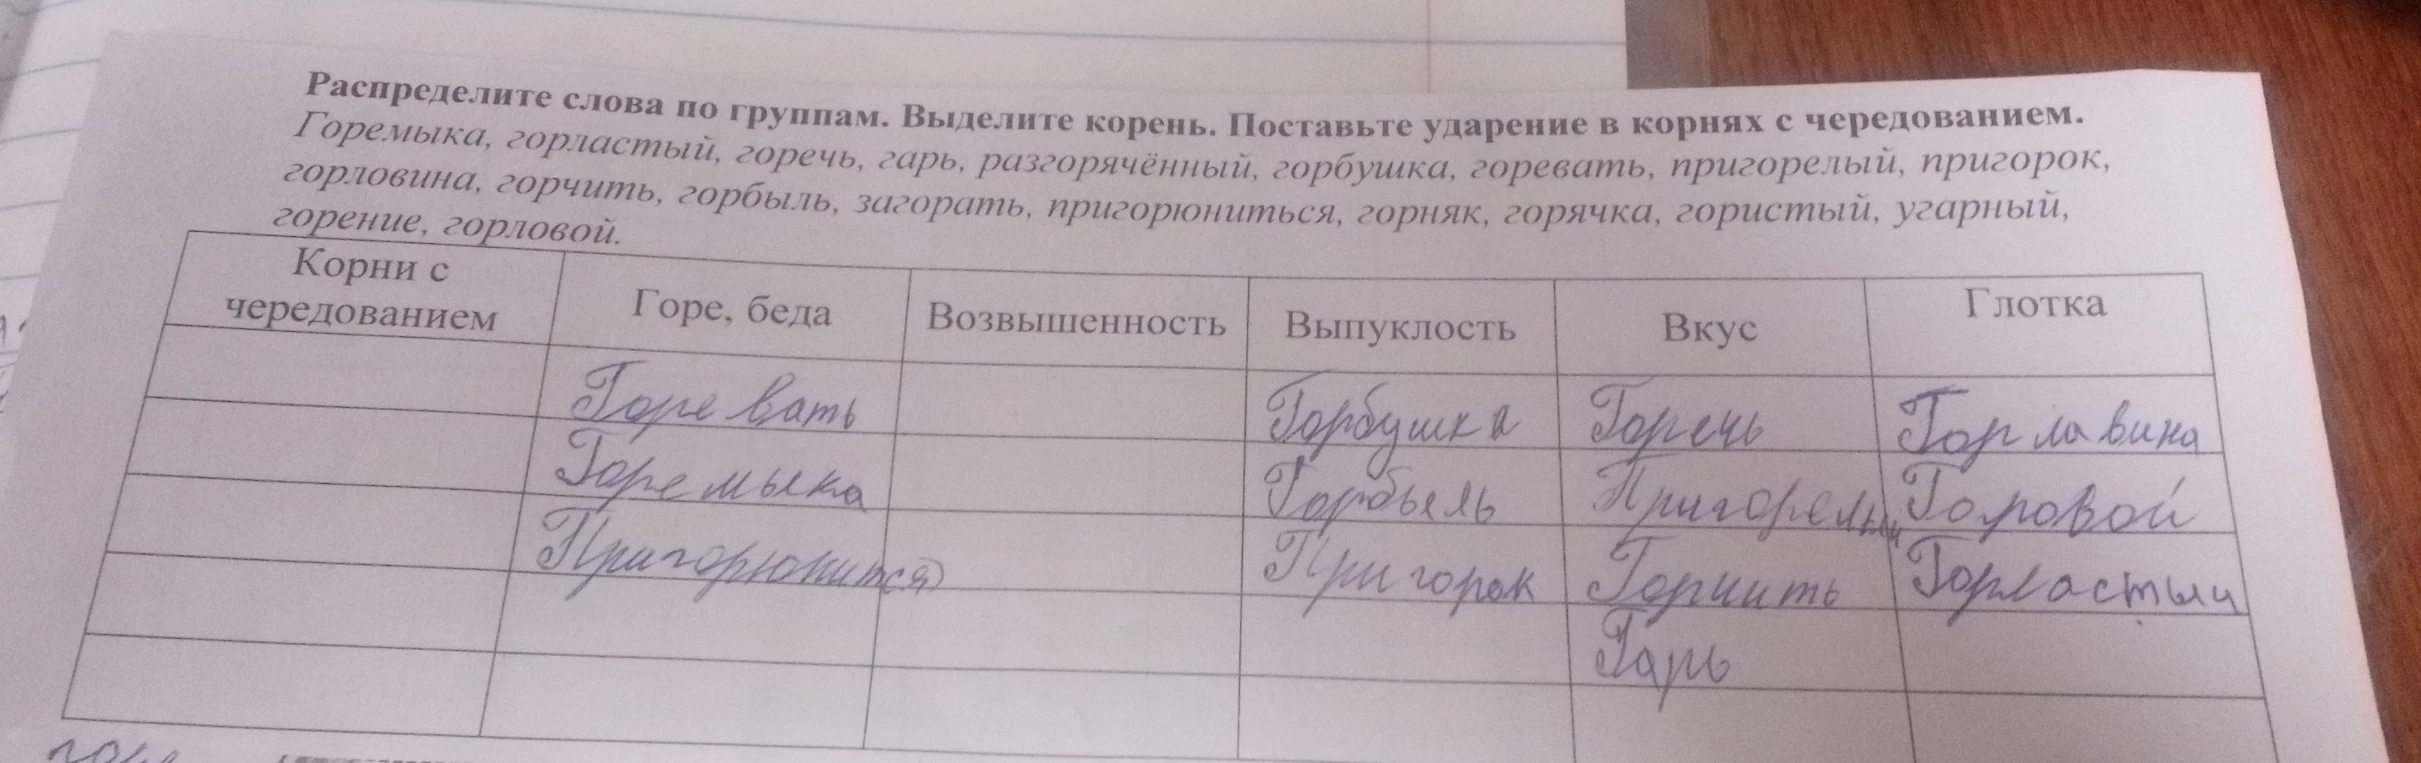 Распределите слова по группам. Выделите корень. Поставьте ударение в корнях с чередованием.
Горемыка, горластый, горечь, гарь, разгорячённый, горбушка, горевать, пригорелый, пригорок,
горловина, горчить, горбыль, загорать, пригорюниться, горняк, горячка, гористый, угарный,
горение, горловой.
Корни с чередованием Горе, беда Возвышенность Выпуклость Вкус Глотка
Горевать Горбушка Горечь Горлавина
Горемыка Горбыль Пригорелый Горовой
Пригорюнится Пригорок Горчить Горластый
Гарь